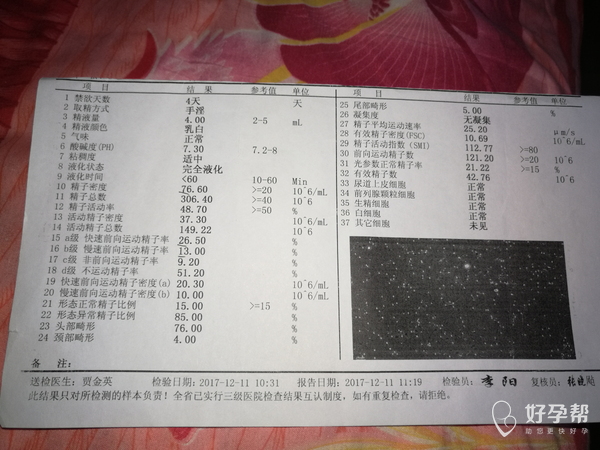 项 目 结 果 参考值 单位
1 禁欲天数 4天 天
2 取精方式 手淫
3 精液量 4.00 2-5 mL
4 精液颜色 乳白
5 气味 正常
6 酸碱度(PH) 7.30 7.2-8
7 粘稠度 适中
8 液化状态 完全液化
9 液化时间 <60 10-60 Min
10 精子密度 76.60 >=20 10^6/mL
11 精子总数 306.40 >=40 10^6
12 精子活动率 48.70 >=50 %
13 活动精子密度 37.30 10^6/mL
14 活动精子总数 149.22 10^6
15 a级 快速前向运动精子率 26.50 %
16 b级 慢速前向运动精子率 13.00 %
17 c级 非前向运动精子率 9.20 %
18 d级 不运动精子率 51.20 %
19 快速前向运动精子密度(a) 20.30 10^6/mL
20 慢速前向运动精子密度(b) 10.00 10^6/mL
21 形态正常精子比例 15.00 >=15 %
22 形态异常精子比例 85.00 %
23 头部畸形 76.00 %
24 颈部畸形 4.00 %
项 目 结果 参考值 单位
25 尾部畸形 5.00 %
26 凝集度 无凝集
27 精子平均运动速率 25.20 μm/s
28 有效精子密度(FSC) 10.69
29 精子活动指数 (SMI) 112.77 >=80
30 前向运动精子数 121.20 >=20 10^6
31 光参数正常精子率 21.22 >=15 %
32 有效精子数 42.76 10^6
33 尿道上皮细胞 正常
34 前列腺颗粒细胞 正常
35 生精细胞 正常
36 白细胞 正常
37 其它细胞 未见
备 注:
送检医生: 贾金英 检验日期:2017-12-11 10:31 报告日期:2017-12-11 11:19 检验员: 李阳 复核员:
此结果只对所检测的样本负责! 全省已实行三级医院检查结果互认制度, 如有重复检查, 请拒绝。
好孕帮
助您更快好孕